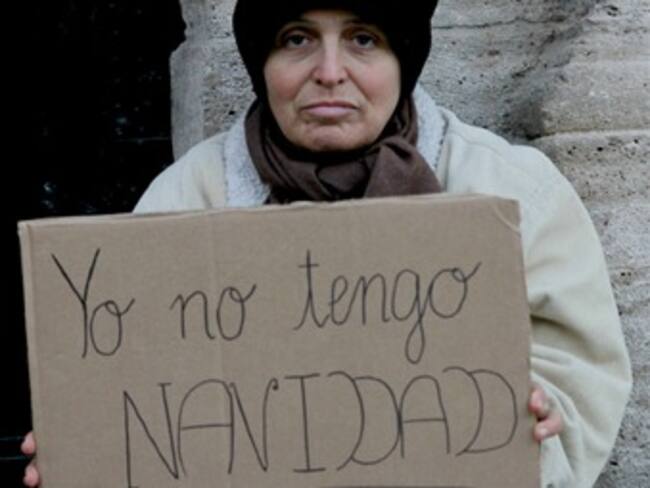 Yo no tengo
NAVIDAD